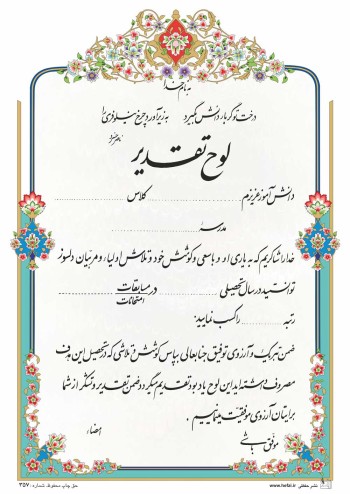 به نام خدا
درخت تو گر بار دانش بگیرد به زیر آورد چرخ نیلوفری را
ناصر خسرو
لوح تقدیر
دانش آموز عزیزم ........ کلاس ........
مدرسه ........
خدا را شاکریم که به یاری او و با سعی و کوشش خود و تلاش اولیاء و مربیان دلسوز
توانستید در سال تحصیلی ........ در مسابقات
امتحانات
رتبه ........ را کسب نمایید.
ضمن تبریک و آرزوی توفیق جنابعالی بپاس کوشش و تلاشی که در تحصیل این هدف
مصروف داشته اید این لوح یادبود تقدیم میگردد ضمن تقدیر و تشکر از شما
برایتان آرزوی موفقیت مینماییم.
موفق باشی
امضاء
حق چاپ محفوظ. شماره: ۳۵۷
www.hefzi.ir